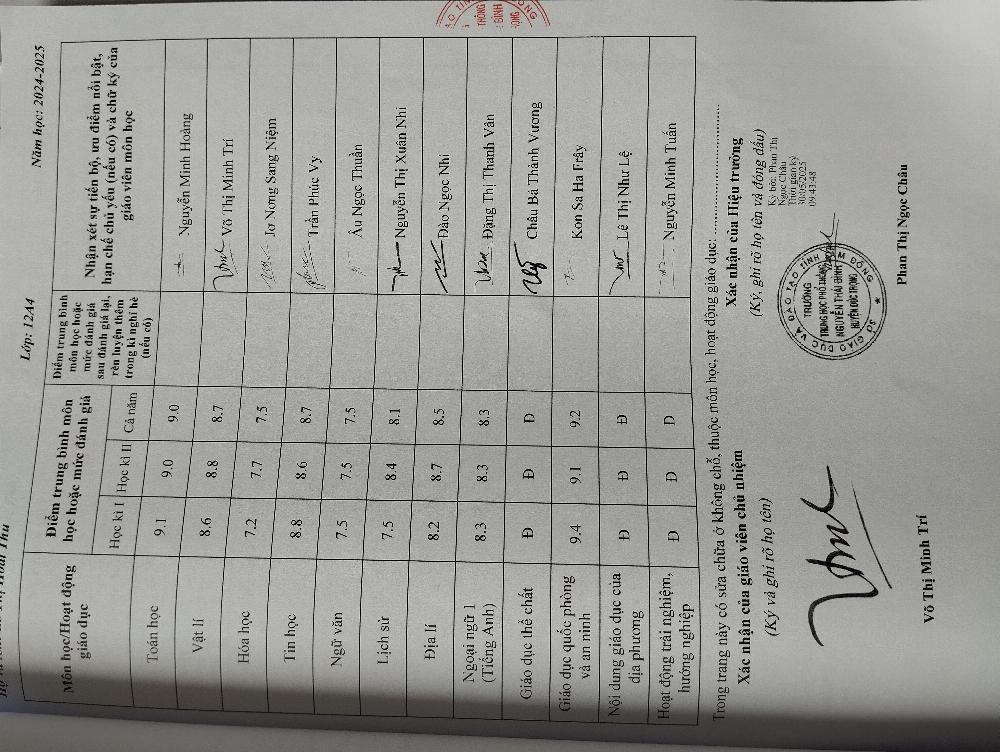 Lớp: 12A4
Năm học: 2024-2025
Môn học/Hoạt động giáo dục
Điểm trung bình môn học hoặc mức đánh giá
Học kì I
Học kì II
Cả năm
Điểm trung bình môn học hoặc mức đánh giá sau đánh giá lại, rèn luyện thêm trong kì nghỉ hè (nếu có)
Nhận xét sự tiến bộ, ưu điểm nổi bật, hạn chế chủ yếu (nếu có) và chữ ký của giáo viên môn học
Toán học 9.1 9.0 9.0 Nguyễn Minh Hoàng
Vật lí 8.6 8.8 8.7 Võ Thị Minh Trí
Hóa học 7.2 7.7 7.5 Jơ Nơng Sang Niệm
Tin học 8.8 8.6 8.7 Trần Phúc Vy
Ngữ văn 7.5 7.5 7.5 Âu Ngọc Thuần
Lịch sử 7.5 8.4 8.1 Nguyễn Thị Xuân Nhi
Địa lí 8.2 8.7 8.5 Đào Ngọc Nhi
Ngoại ngữ 1 (Tiếng Anh) 8.3 8.3 8.3 Đặng Thị Thanh Vân
Giáo dục thể chất Đ Đ Đ Châu Bá Thành Vương
Giáo dục quốc phòng và an ninh 9.4 9.1 9.2 Kon Sa Ha Frây
Nội dung giáo dục của địa phương Đ Đ Đ Lê Thị Như Lệ
Hoạt động trải nghiệm, hướng nghiệp Đ Đ Đ Nguyễn Minh Tuấn
Trong trang này có sửa chữa ở không chỗ, thuộc môn học, hoạt động giáo dục:
Xác nhận của giáo viên chủ nhiệm
(Ký và ghi rõ họ tên)
Võ Thị Minh Trí
Xác nhận của Hiệu trưởng
(Ký, ghi rõ họ tên và đóng dấu)
Ký bởi: Phan Thị
Ngọc Châu
Thời gian ký
30/05/2025
09:43:48
SỞ GIÁO DỤC VÀ ĐÀO TẠO TỈNH LÂM ĐỒNG
TRƯỜNG
TRUNG HỌC PHỔ THÔNG
NGUYỄN THÁI BÌNH
HUYỆN ĐỨC TRỌNG
Phan Thị Ngọc Châu